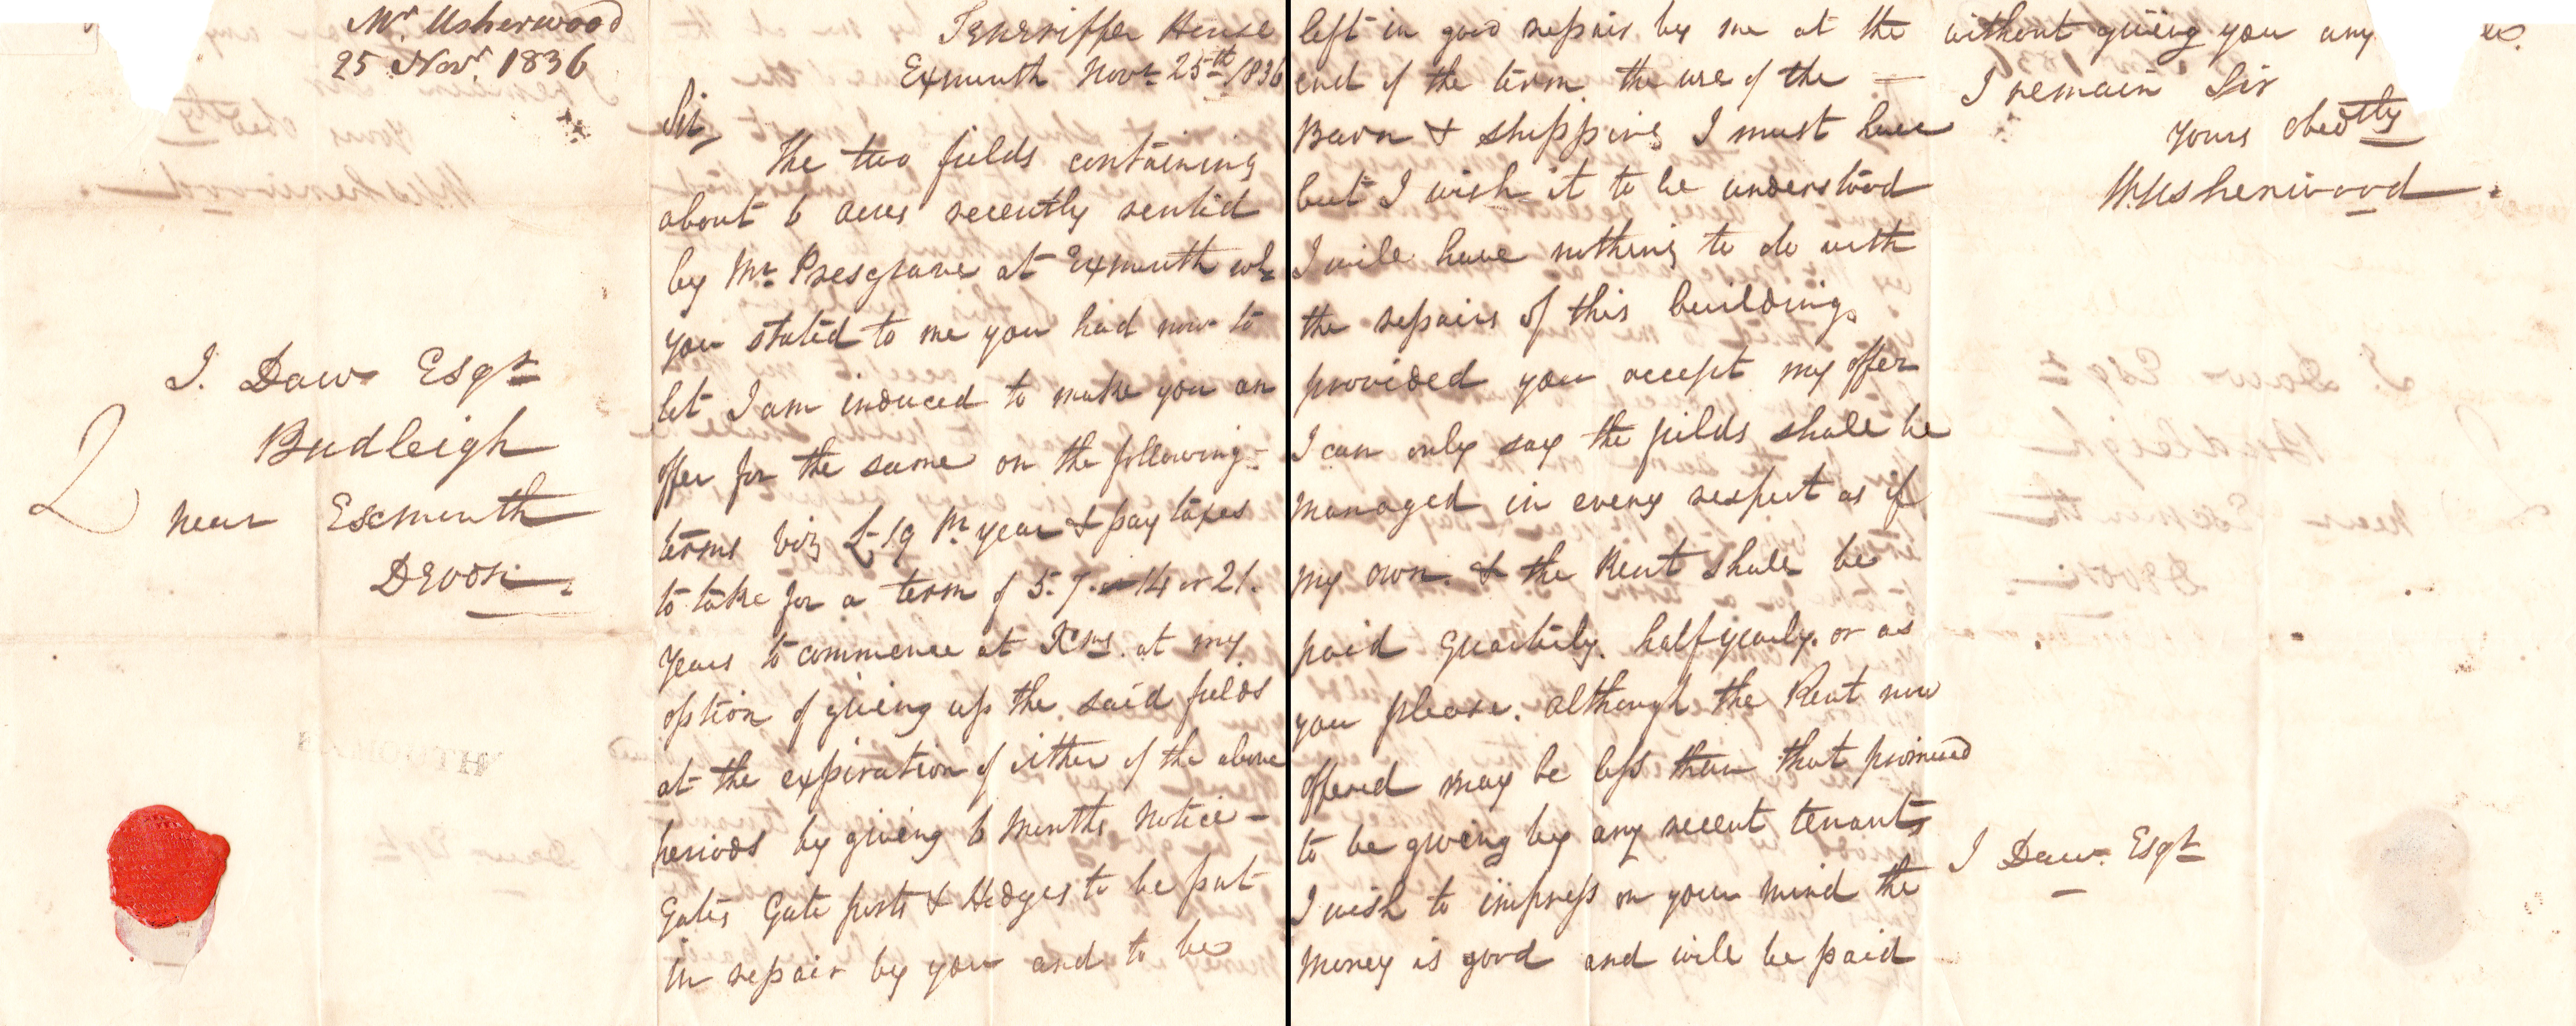 Mr. Usherwood
25 Novr. 1836
J. Daw Esqr
Budleigh
near Exmouth
Devon
2
Teneriffe House
Exmouth Novr 25th 1836
Sir,
The two fields containing
about 6 acres recently rentid
by Mr. Presgrave at Exmouth wh
you stated to me you had now to
let I am induced to make you an
offer for the same on the following-
terms viz £19 Pr year & pay taxes
to take for a term of 5. 7. 14 or 21.
years to commence at Xms. at my
option of giving up the said fields
at the expiration of either of the above
periods by giving 6 Months Notice -
Gates Gate posts & Hedges to be put
in repair by you and to be
left in good repair by me at the
end of the term. the use of the -
Barn & shipping I must have
but I wish it to be understood
I will have nothing to do with
the repairs of this building.
provided you accept my offer
I can only say the filds shall be
managed in every respect as if
my own. & the Rent shall be
paid Quarterly. half yearly. or as
you please. although the Rent now
offered may be less than that promised
to be giveing by any recent tenants
I wish to impress on your mind the
Money is good and will be paid
without giveing you any
I remain Sir
yours obedtly
W. Usherwood
J Daw. Esqr